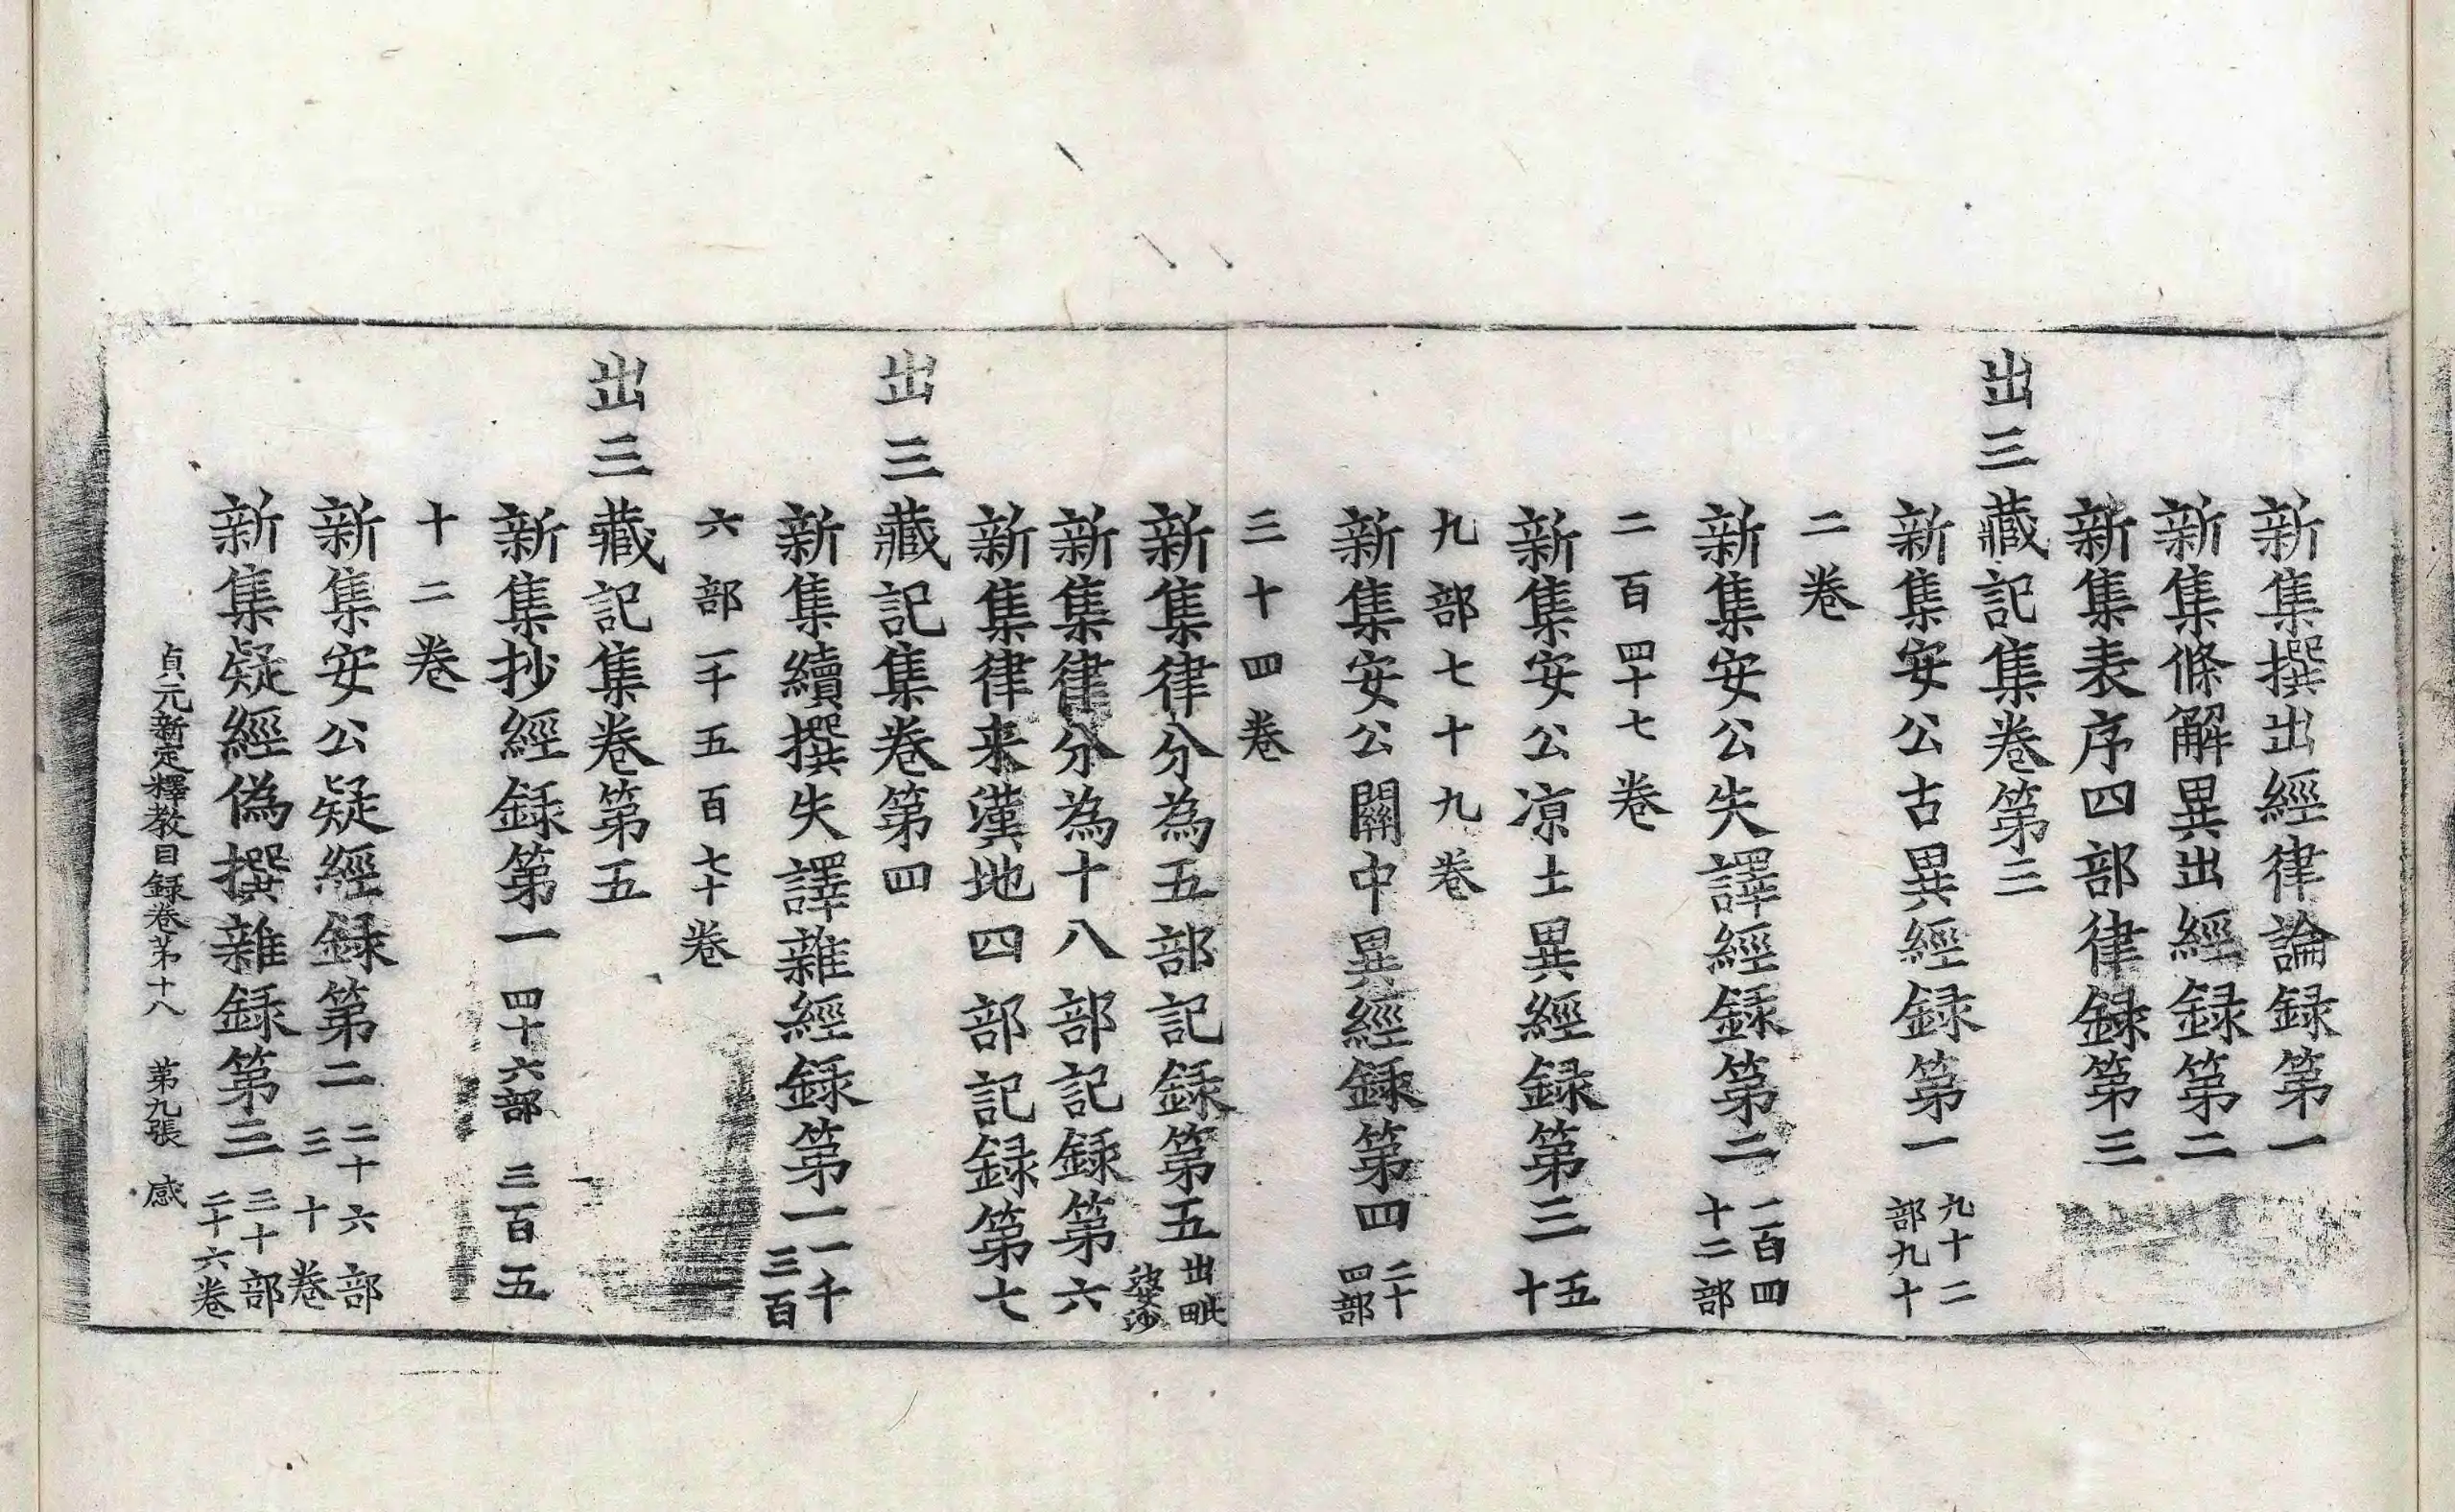 新集撰出經律論録第一
新集條解異出經録第二
新集表序四部律録第三
出三藏記集卷第三
新集安公古異經録第一 九十二部九十
二卷
新集安公失譯經録第二 一百四十二部
二百四十七卷
新集安公凉土異經録第三 五十
九部七十九卷
新集安公關中異經録第四 二十四部
三十四卷
新集律分為五部記録第五 出毗婆沙
新集律分為十八部記録第六
新集律来漢地四部記録第七
出三藏記集卷第四
新集續撰失譯雜經録第一 一千三百
六部一千五百七十卷
出三藏記集卷第五
新集抄經録第一 四十六部 三百五
十二卷
新集安公疑經録第二 二十六部三十卷
新集疑經偽撰雜録第三 二十部二十六卷
貞元新定釋教目録卷苐十八 苐九張 感